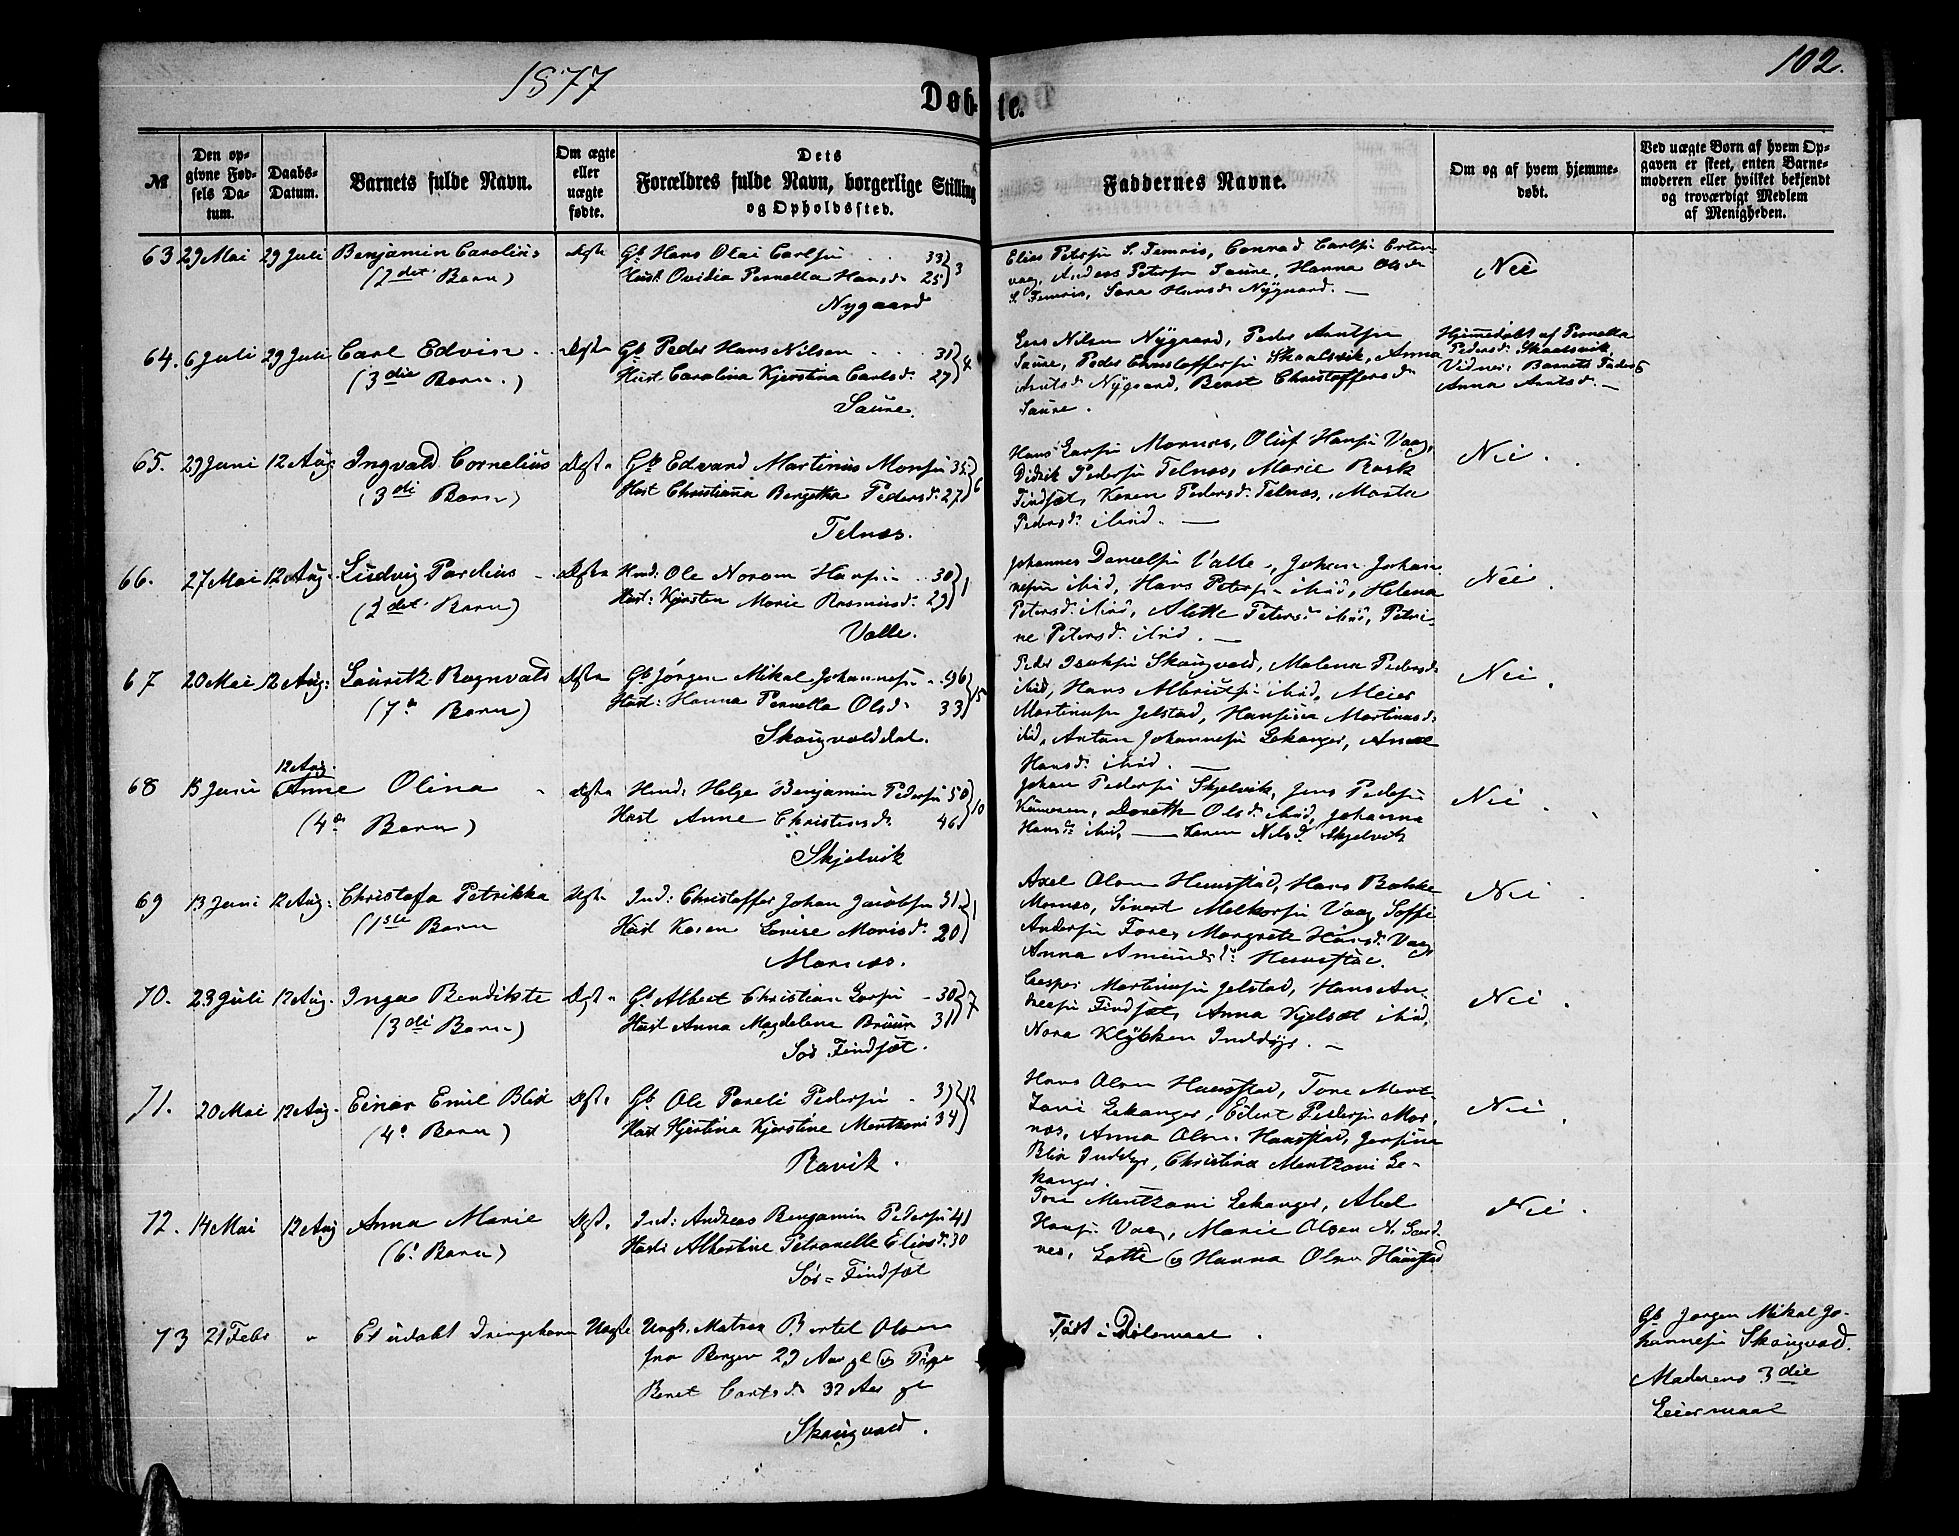 1877
102.
Døbte.
№
Den opgivne Fødsels Datum.
Daabs-Datum.
Barnets fulde Navn.
Om ægte eller uægte fødte.
Dets Forældres fulde Navn, borgerlige Stilling og Opholdssted.
Faddernes Navne.
Om og af hvem hjemmedøbt.
Ved uægte Børn af hvem Opgaven er skeet, enten Barnemoderen eller hvilket bekjendt og troværdigt Medlem af Menigheden.
63 29 Mai 29 Juli Benjamin Carolius Ægte Gb Hans Olai Carlsen 33
(2det Barn) Hust. Ovidia Pernella Hansd. 25 3
Nygaard
Elias Petersen S. Femris, Conrad Carlsen Erten-
vag, Anders Petersen Saure, Hanna Olsdr
S. Femris, Sara Hansd. Nygaard. —
Nei
64. 6 Juli 29 Juli Carl Edvin Ægte Gb Peder Hans Nilsen 31
(3die Barn.) Hust Carolina Kjerstina Carlsd. 27 4
Saure.
Lars Nilsen Nygaard, Peder Arntsen
Saure, Peder Christoffersen Skaalsvik, Anna
Arntsd. Nygaard, Beret Christoffersd
Saure.
Hjemmedøbt af Pernella
Pedersd. Skaalsvik
Vidner: Barnets Fader &
Anna Arntsd. —
65. 29 Juni 12 Aug. Ingvald Cornelius Ægte Gb Edvard Martinus Monsen 35
(3di Barn) Hust Christianna Bergetha Pedersd. 27 6
Telnæs.
Hans Larsen Mornes, Oluf Hansen Vaag,
Didrik Pedersen Telnæs, Marie Rask
Findsæt, Karen Pedersd. Telnæs, Marta
Pedersd. ibid. —
Nei.
66. 27 Mai 12 Aug. Ludvig Pardius Ægte Hmd: Ole Norom Hansen 30
(2det Barn) Hust: Kjersten Marie Rasmusd. 29 1
Valle.
Johannes Danielsen Valle, Johan Johan-
nesen ibid, Hans Petersen ibid, Helena
Petersd. ibid, Alette Petersd ibid, Petri-
ne Petersd. ibid. —
Nei.
67 20 Mai 12 Aug: Lauritz Ragnvald Ægte Gb Jørgen Mikal Johannesen 46
(7de Barn) Hust: Hanna Pernella Olsd. 33 15
Skaugvolddal.
Peder Isaksen Skaugvold, Malena Pedersd.
ibid, Hans Albrigtsen ibid, Meier
Martinusen Jelstad, Hansina Martinusd.
ibid, Anton Johannesen Lekanger, Anne
Hansd. ibid. —
Nei.
68 15 Juni 12 Aug. Anne Olina Ægte Hmd: Helge Benjamin Pedersen 50
(4de Barn) Hust Anne Christensd. 46 10
Skjelvik
Johan Pedersen Skjelvik, Jens Pedersen
Dorethe Olsd. ibid, Johanna
Hansd. ibid, — Karen Nilsd. Skjelvik
Nei.
69 13 Juni 12 Aug: Christoffa Petrikka Ægte Ind: Christoffer Johan Jacobsen 31
(1ste Barn Hust Karen Lovise Monsd. 20 1
Mornæs.
Axel Olsen Haustad, Hans Bakke
Mornæs, Sivert Melkersen Vaag, Soffie
Andersen Fore, Margrete Hansd. Vaag
Anna Amundsd. Haustad.
Nei
70. 23 Juli 12 Aug. Inga Bendikte Ægte Gb Albert Christian Larsen 30
(3di Barn) Hust Anna Magdalena Bruun 31 7
Sør Findsæt.
Casper Martinusen Jelstad, Hans An-
dreasen Findsæt, Anna Kjelsæt ibid,
Nora Klykken Inddyr. —
Nei.
71. 20 Mai 12 Aug. Einar Emil Blix Ægte Gb. Ole Pareli Pedersen 39
(4de Barn) Hust Hjertina Kjerstine Mentzoni 34 12
Ravik.
Hans Olsen Haustad, Tore Ment-
zoni Lekanger, Edert Pedersen Mor-
næs, Anna Olsen Haustad, Jensine
Blix Inddyr, Christina Mentzoni Le-
kanger.
Nei.
72. 14 Mai 12 Aug Anna Marie Ægte. Ind: Andreas Benjamin Pedersen 41
(6te Barn) Hust: Albertine Petronelle Eliasd. 30
Sør-Findsæt
Tore Mentzoni Lekanger, Abel
Hansen Vaag, Marie Olsen N. Sand-
nes, Lotte og Hanna Olsen Haustad
Nei.
73 21 Febr " Et udøbt Drengebarn Uægte Ungk. Matros Bertel Olsen
fra Bergen 29 Aar gl og Pige
Beret Carlsd. 32 Aar gl
Skaugvold.
Født i Dølsmaal.
Gb Jørgen Mikal Jo-
hannesen Skaugvold.
Moderens 3die
Leiermaal